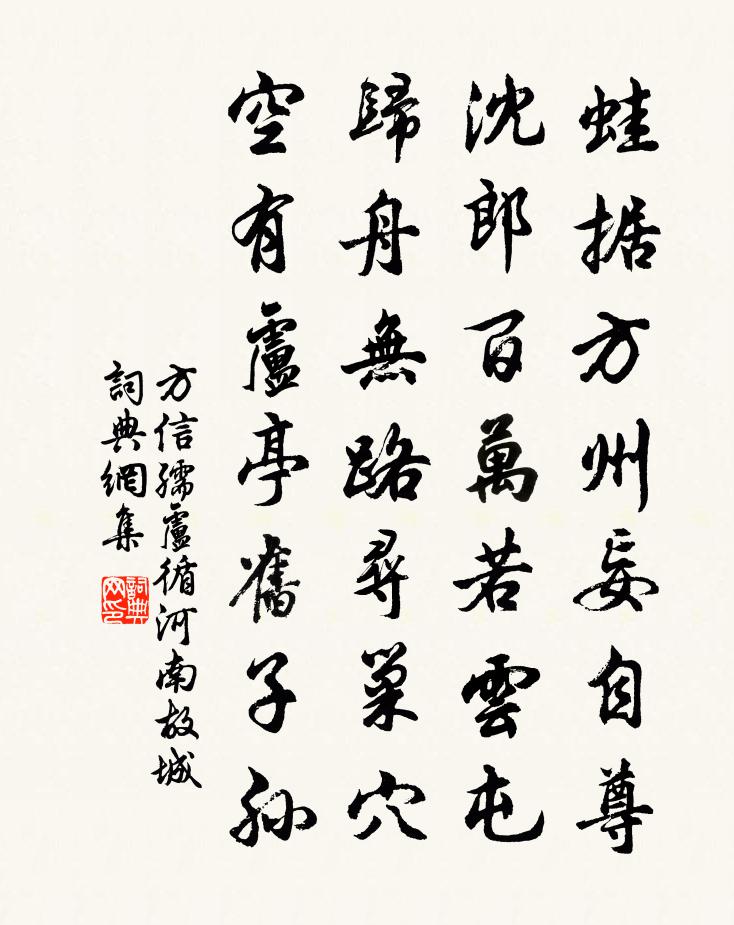 蛙据方州妄自尊
沈郎百萬若雲屯
歸舟無路尋巢穴
空有盧亭舊子孫
方信孺盧循河南故城
詞典網集
詞典
网印